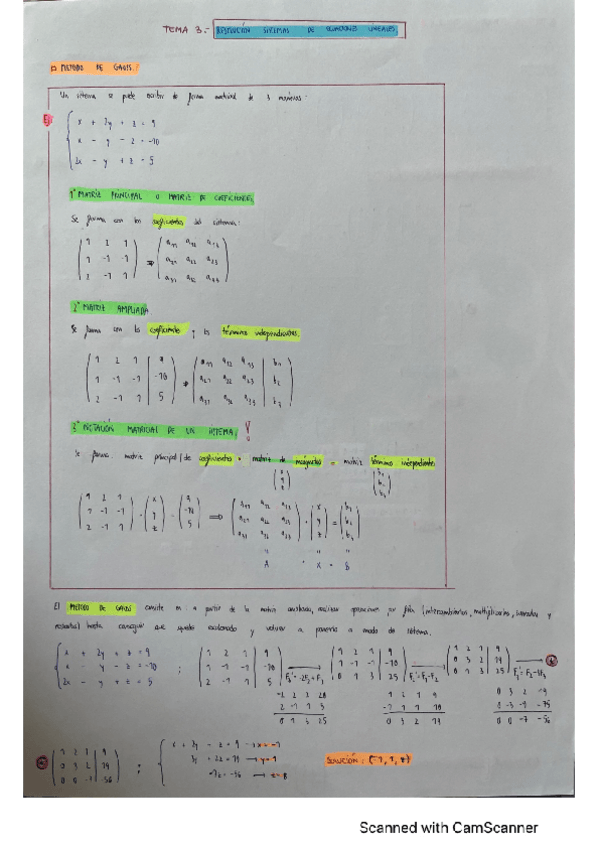 TEMA 3.- RESOLUCIÓN SISTEMAS DE ECUACIONES LINEALES
MÉTODO DE GAUSS:
Un sistema se puede escribir de forma matricial de 3 maneras:
Ej:
x + 2y + z = 9
x - y - z = -10
2x - y + z = 5
1º MATRIZ PRINCIPAL O MATRIZ DE COEFICIENTES
Se forma con los coeficientes del sistema:
1 2 1
1 -1 -1 ⇒
2 -1 1
a11 a12 a13
a21 a22 a23
a31 a32
2º MATRIZ AMPLIADA
Se forma con los coeficientes y los términos independientes.
1 2 1 | 9
1 -1 -1 | -10 ⇒
2 -1 1 | 5
a11 a12 a13 | b1
a21 a22 a23 | b2
a31 a32 a33 | b3
3º NOTACIÓN MATRICIAL DE UN SISTEMA
Se forma: matriz principal/de coeficientes · matriz de incógnitas = matriz términos independientes
x
y
z
b1
b2
b3
1 2 1
1 -1 -1
2 -1 1
x
y
z
9
-10
5
⇒
a11 a12 a13
a21 a22 a23
a31 a32 a33
x
y
z
=
b1
b2
b3
A · X = B
El MÉTODO DE GAUSS consiste en: a partir de la matriz ampliada, realizar operaciones por filas (intercambiarlos, multiplicarlos, sumarlos y
restarlos) hasta conseguir que quede escalonado y volver a ponerlo a modo de sistema.
x + 2y + z = 9
x - y - z = -10 ;
2x - y + z = 5
1 2 1 | 9
1 -1 -1 | -10
2 -1 1 | 5
1 2 1 | 9
1 -1 -1 | -10
0 1 3 | 25
1 2 1 | 9
0 3 2 | 19
0 1 3 | 25
0 1 3 25
1 2 1 9
0 3 2 19
0 3 2
0 0 -7 -56
1 2 1 | 9
0 3 2 | 19
0 0 | -56
;
3y + 2z = 19 → y = 1
-7z = -56 → z = 8
SOLUCIÓN:
Scanned with CamScanner